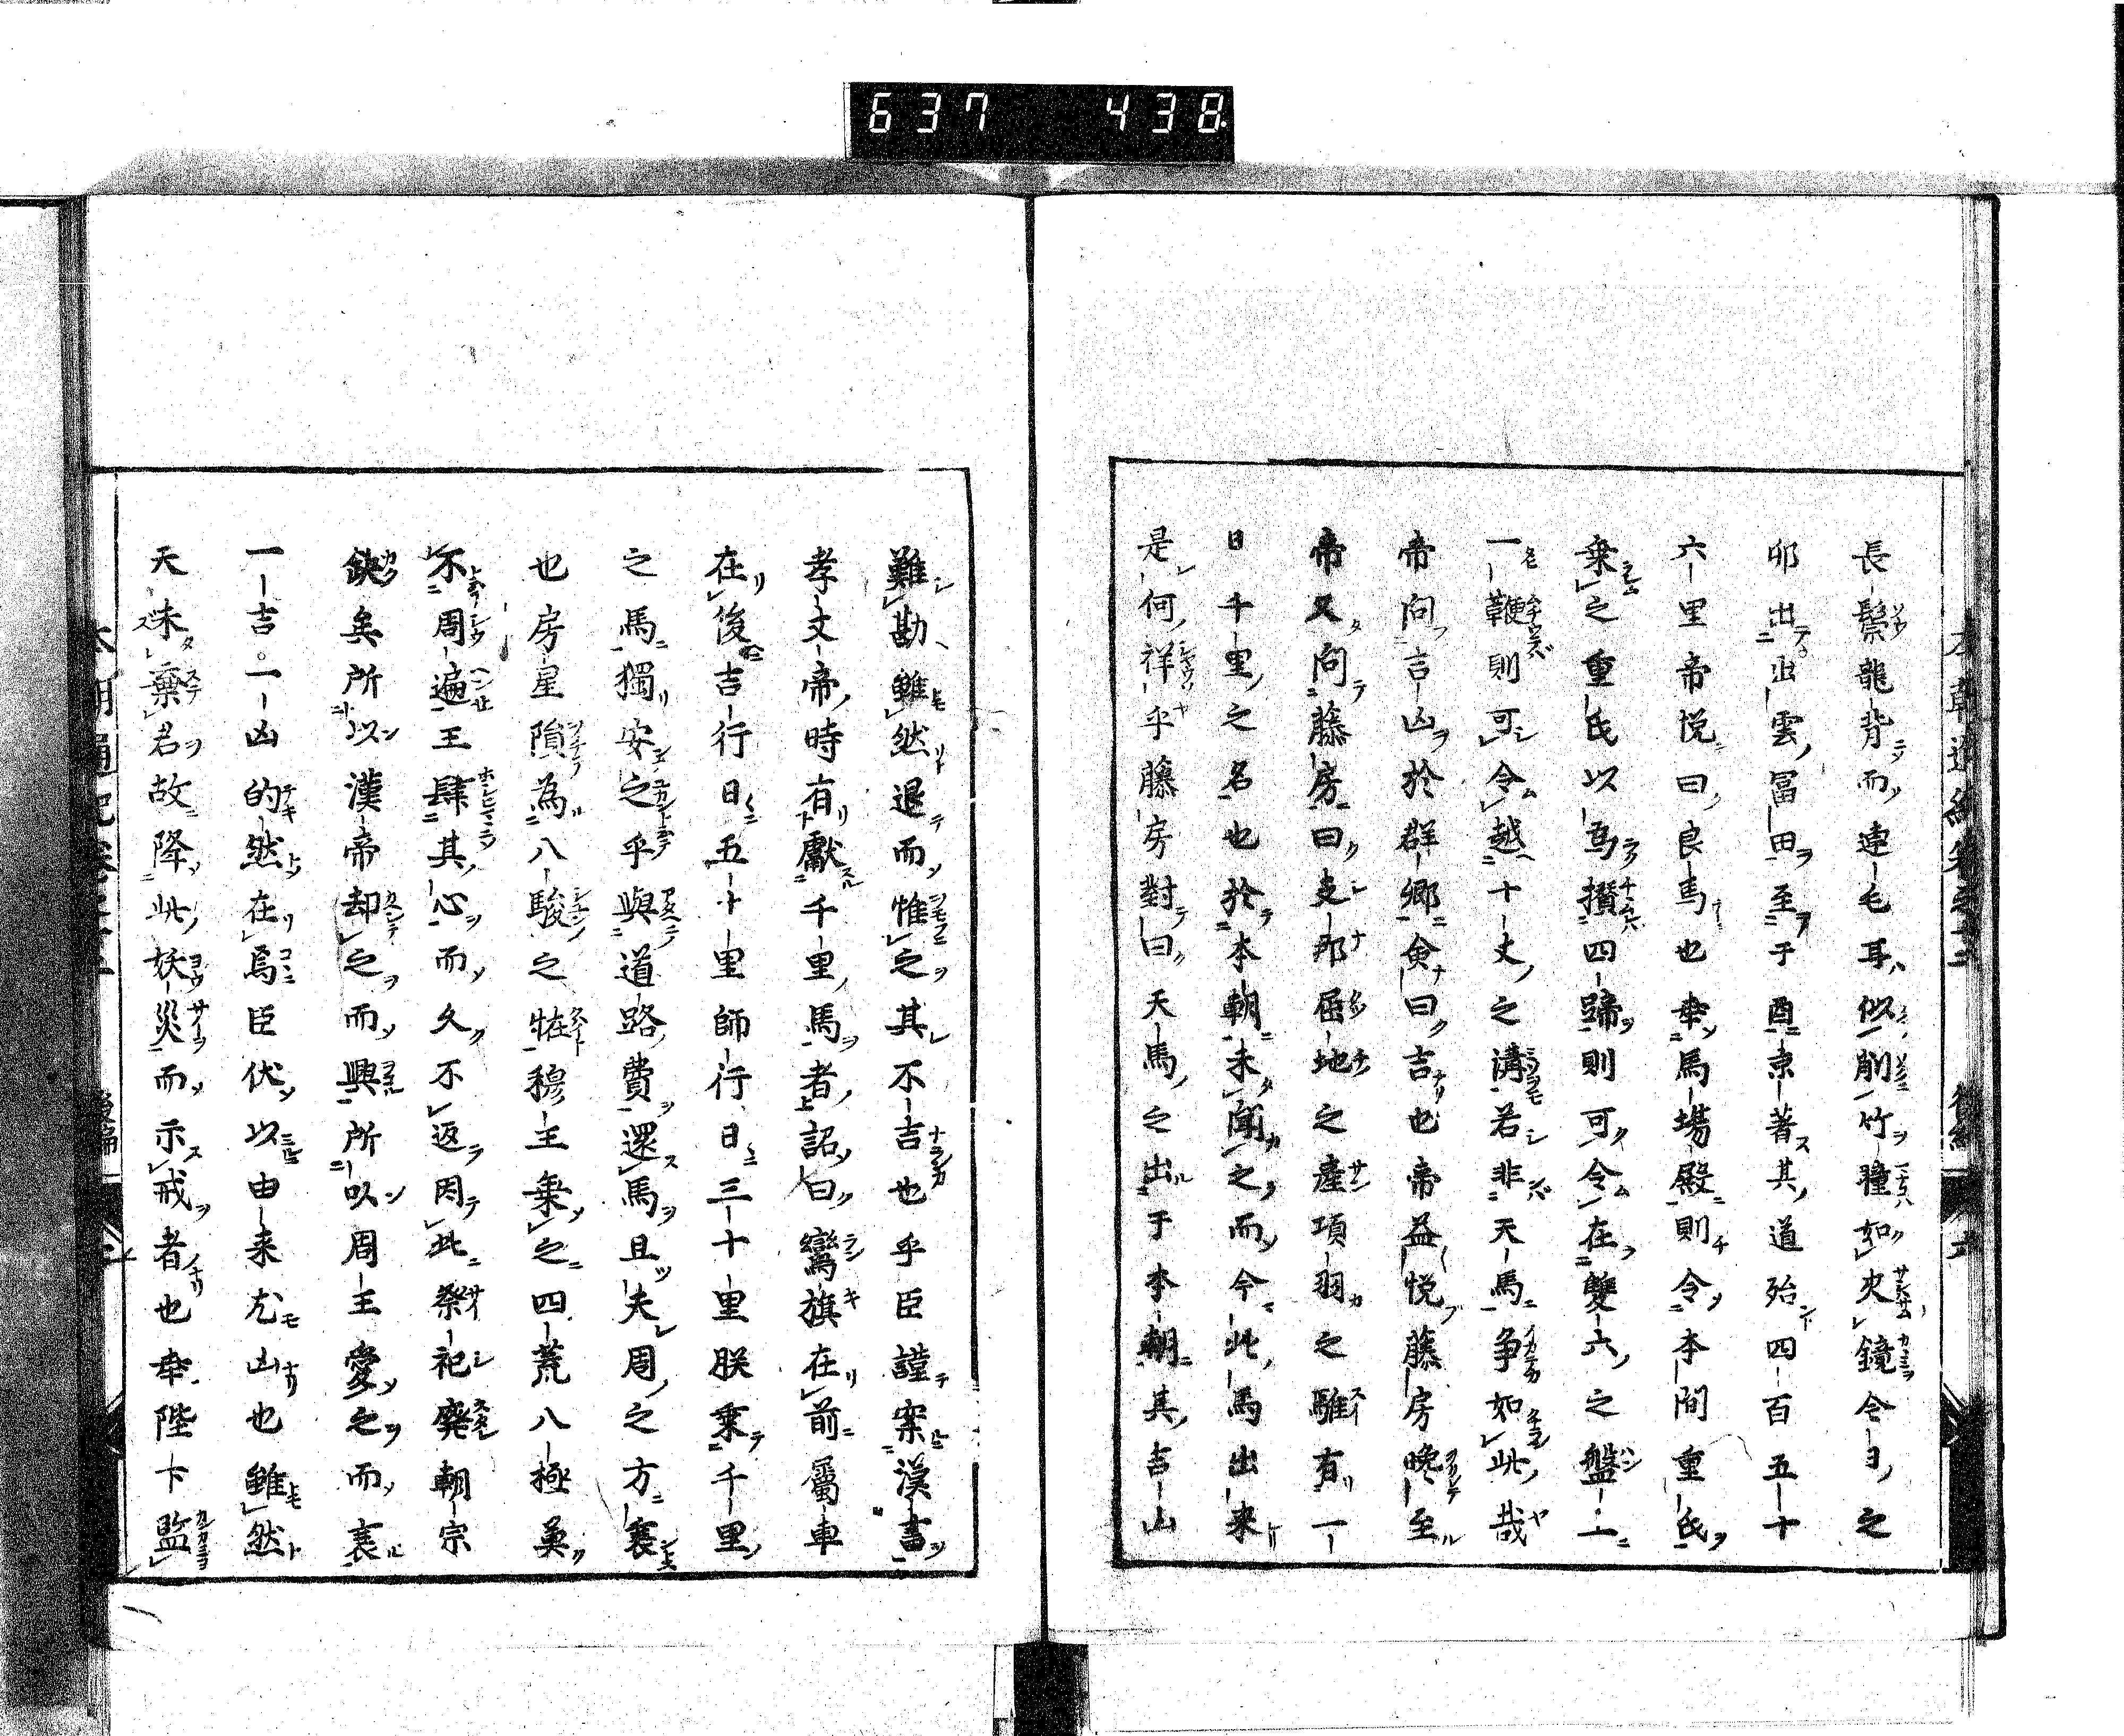 637 438
長鬃龍背而連毛耳似削竹瞳如火鏡今日之
卯出出雲冨田至于酉京著其道殆四百五十
六里帝悦曰良馬也牽馬場殿則令本間重氏
乗之重氏以為攅四蹄則可令在雙六之盤上
一鞭則可令越十丈之溝若非天馬争如此哉
帝問吉凶於群郷僉曰吉也帝益悦藤房晩至
帝又問藤房曰支那屈地之產項羽之騅有一
日千里之名也於本朝未聞之而今此馬出来
是何祥乎藤房對曰天馬之出于本朝其吉凶
難勘雖然退而惟之其不吉也乎臣謹案漢書
孝文帝時有獻千里馬者詔曰鸞旗在前屬車
在後吉行日五十里師行日三十里朕乗千里
之馬獨安之乎與道路費還馬且夫周之方衰
也房星隕為八駿之在穆王乗之四荒八極莫
不周遍王肆其心而久不返因此祭祀廃朝宗
缺矣所以漢帝却之而興所以周王愛之而衰
一吉一凶的然在焉臣伏以由来尤凶也雖然
天未棄名故降此妖災而示戒者也牽陛下監